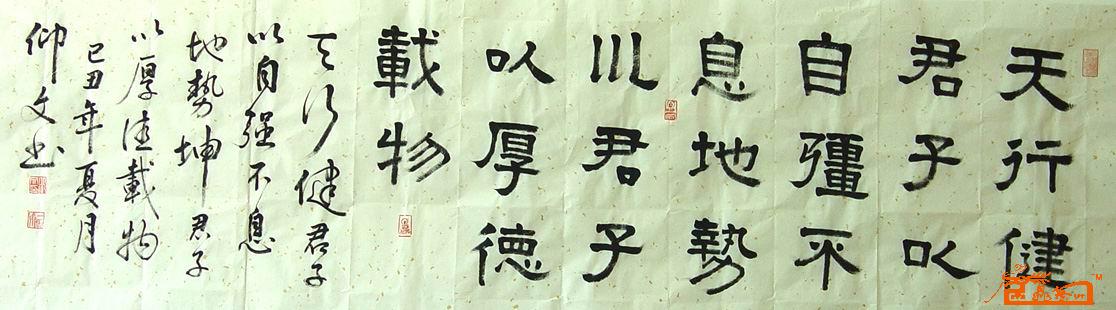 天行健
君子以
自彊不
息地勢
巛君子
以厚德
載物
天行健君子
以自强不息
地勢坤君子
以厚德載物
己丑年夏月
仰文书